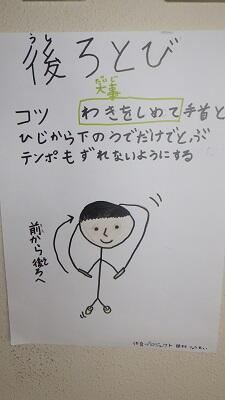 うし
後ろとび
だいじ
大事
コツ わきをしめて手首と
ひじから下のうでだけでとぶ
テンポもずれないようにする
前から
後ろへ